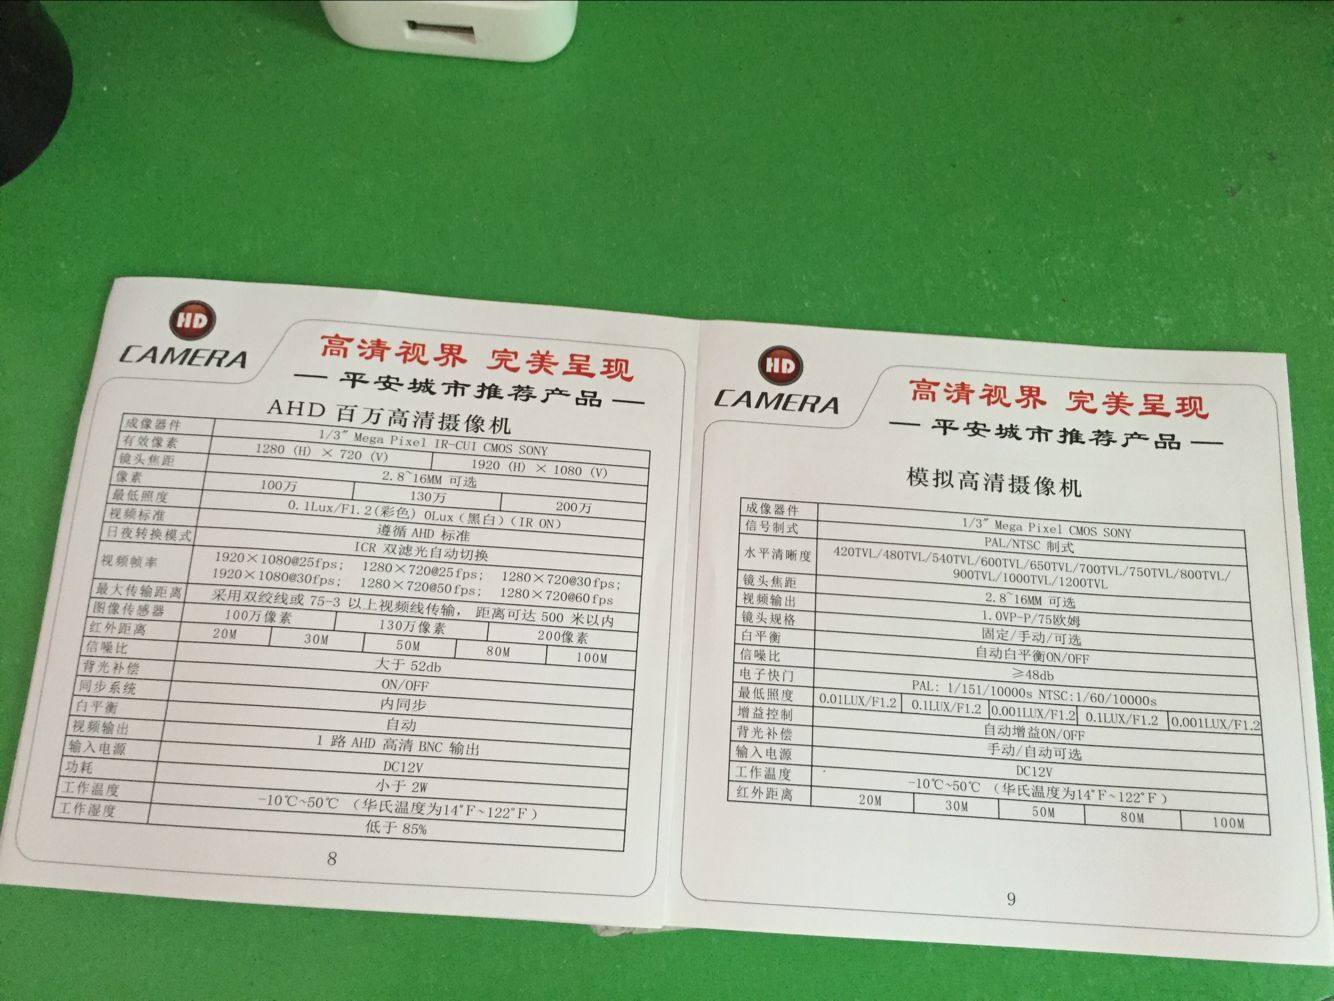 HD
CAMERA
高清视界 完美呈现
— 平安城市推荐产品 —
AHD 百万高清摄像机
成像器件 1/3″ Mega Pixel IR-CUI CMOS SONY
有效像素 1280 (H) × 720 (V) 1920 (H) × 1080 (V)
镜头焦距 2.8~16MM 可选
像素 100万 130万 200万
最低照度 0.1Lux/F1.2(彩色) 0Lux (黑白) (IR ON)
视频标准 遵循 AHD 标准
日夜转换模式 ICR 双滤光自动切换
视频帧率 1920×1080@25fps; 1280×720@25fps; 1280×720@30fps;
1920×1080@30fps; 1280×720@50fps; 1280×720@60fps
最大传输距离 采用双绞线或 75-3 以上视频线传输, 距离可达 500 米以内
图像传感器 100万像素 130万像素 200像素
红外距离 20M 30M 50M 80M 100M
信噪比 大于 52db
背光补偿 ON/OFF
同步系统 内同步
白平衡 自动
视频输出 1 路 AHD 高清 BNC 输出
输入电源 DC12V
功耗 小于 2W
工作温度 -10℃~50℃ (华氏温度为14°F~122°F)
工作湿度 低于 85%
8
HD
CAMERA
高清视界 完美呈现
— 平安城市推荐产品 —
模拟高清摄像机
成像器件 1/3″ Mega Pixel CMOS SONY
信号制式 PAL/NTSC 制式
水平清晰度 420TVL/480TVL/540TVL/600TVL/650TVL/700TVL/750TVL/800TVL/
900TVL/1000TVL/1200TVL
镜头焦距 2.8~16MM 可选
视频输出 1.0VP-P/75欧姆
镜头规格 固定/手动/可选
白平衡 自动白平衡ON/OFF
信噪比 ≥48db
电子快门 PAL: 1/151/10000s NTSC:1/60/10000s
最低照度 0.01LUX/F1.2 0.1LUX/F1.2 0.001LUX/F1.2 0.1LUX/F1.2 0.001LUX/F1.2
增益控制 自动增益ON/OFF
背光补偿 手动/自动可选
输入电源 DC12V
工作温度 -10℃~50℃ (华氏温度为14°F~122°F)
红外距离 20M 30M 50M 80M 100M
9